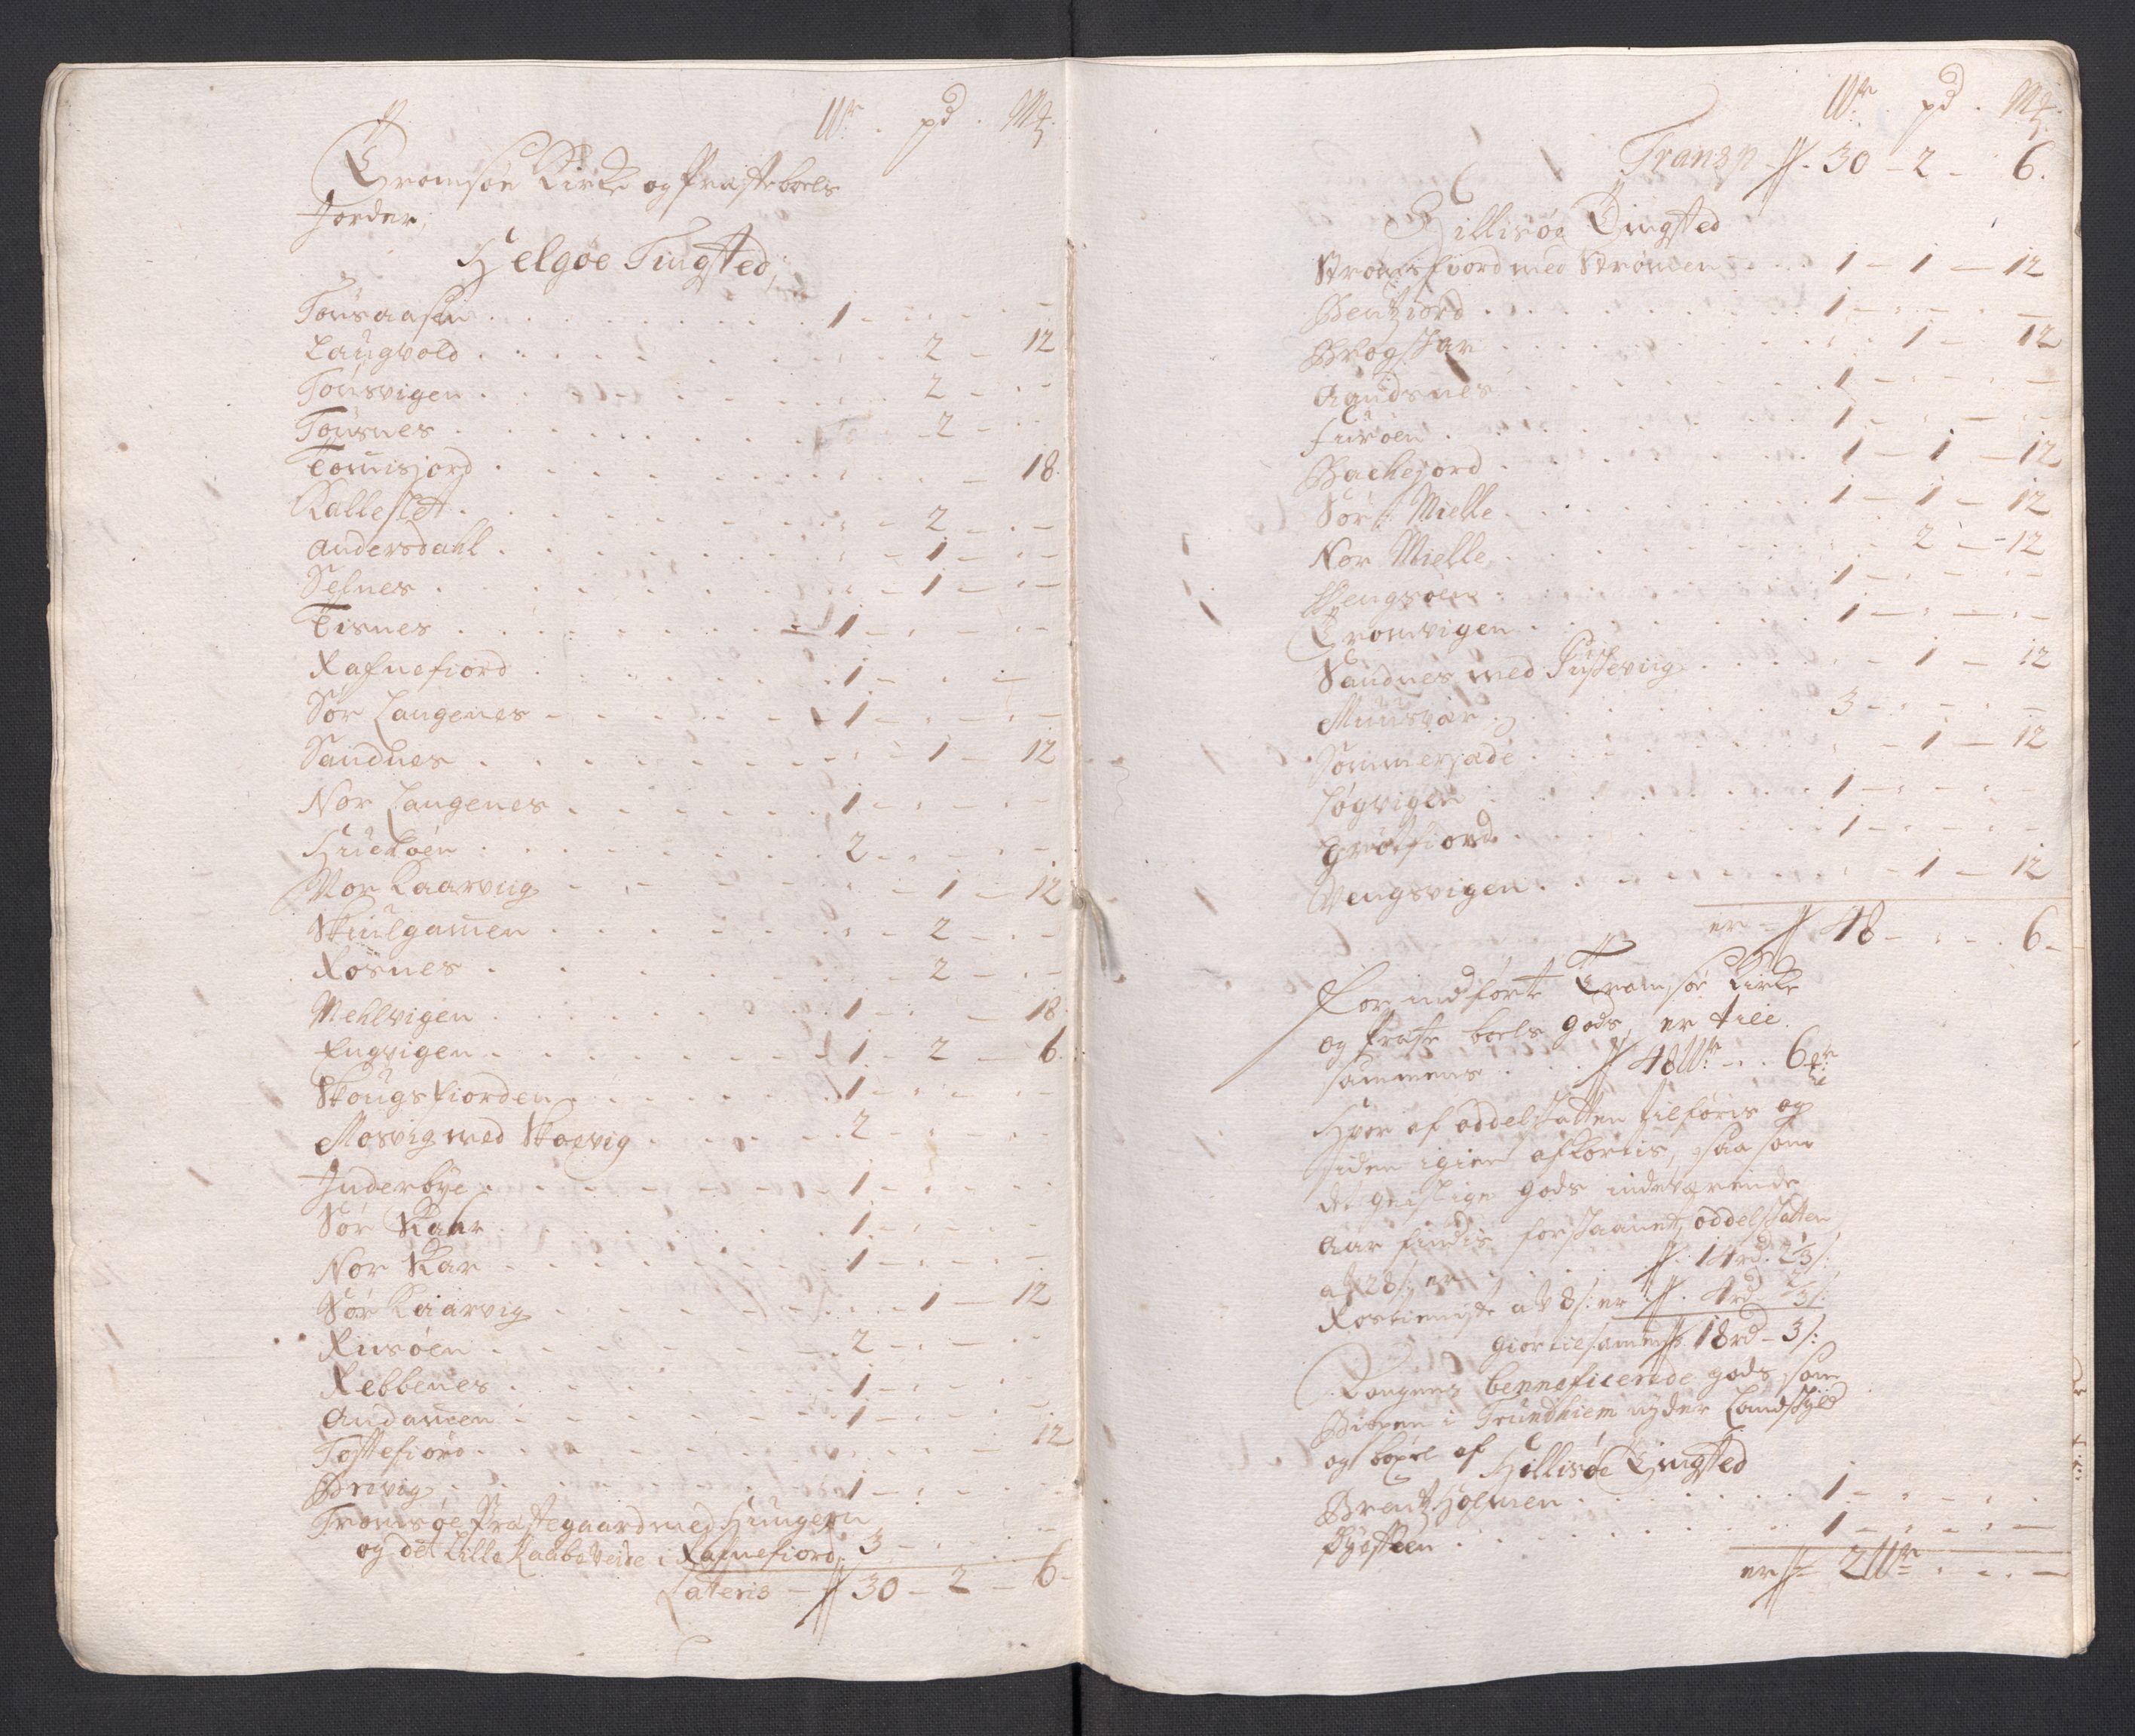 Wr . pd . Mk:
Tromsøe Kirke og Præsteboels
Jorder,
Helgøe Tingsted,
Tønsaasen . . . 1 - . - . -
Laugvold . . . 2 - 12
Tønsvigen . . . 2 - . -
Tønsnes . . . 2 - . -
Tomisjord . . . - 18.
Kalleslet . . . 2 - . -
Andersdahl . . . 1 - . -
Selnes . . . 1 - . -
Tisnes . . . 1 - . - . -
Rafnefiord . . . 1 - . -
Sør Langenes . . . 1 - . - . -
Sandnes . . . 1 - 12
Nor Langenes . . . 1 - . - . -
Huekøen . . . 2 - . - . -
Nor Kaarviig . . . 1 - 12
Skuulgammen . . . 2 - . -
Røsnes . . . 2 - . -
Mehlvigen . . . 1 - . - 18.
Engvigen . . . 1 - 2 - 6.
Skougsfiorden . . . 1 - . - . -
Mosvig med Skoevig . . . 2 - . - . -
Inderbye . . . 1 - . - . -
Sør Skaar . . . 1 - . - . -
Nor Skar . . . 1 - . - . -
Sør Kaarvig . . . 1 - 12
Riisøen . . . 2 - . - . -
Rebbenes . . . 1 - . - . -
Andammen . . . 1 - . - . -
Tostefiord . . . - 12
Brevig . . . 1 - . - . -
Tromsøe Præstegaard med Hungern
og det Lille Raabeveide i Rafnefiord, 3 - . - . -
Lateris - 30 - 2 - 6 -
Wr . pd . Mk:
Transp - 30 - 2 - 6.
Hillisøe Tingsted
Strømsfiord med Strømen . . . 1 - 1 - 12
Bentziord . . . 1 - . - . -
Brogskar . . . 1 - 12
Aaudsnes . . . 1 - . - . -
Furøen . . . 1 - . - . -
Bachejord . . . 1 - 1 - 12
Sør Mielle . . . 1 - 1 - 12
Nor Mielle . . . 2 - 12
Wengsøen . . . 1 - . - . -
Tromvigen . . . 1 - . - . -
Sandnes med Puskeviig . . . 1 - 12
Muusvær . . . 3 - . - . -
Sommerjade . . . 1 - 12
Løgvigen . . . 1 - . - . -
Grøtfiord . . . 1 - . - . -
Wengsvigen . . . 1 - 12
er - 48 - . - . 6 -
For indførte Tromsøe Kirke
og Præste boels gods, er till
sammens . . . 48 Wr - . . 6 Mk:
Hvor af oddelskatten tilføris og
siden igien afkortis, saa som
det geistlige gods indeværende
Aar findis forskaanet, oddelskatten
a 28 s: er . . . 14 rd. 2 1/3 s:
Rostieniste a 8 s: er . . 4 rd. 2/3 s:
giør tilsamens 18 rd - 3 s:
Kongens benneficerede gods som
Bispen i Trundhiem nyder Landskyld
og bøxel af Hillisøe Tingsted
Brentz Holmen . . . 1 - . - . -
Bysteen . . . 1 - . - . -
er 2 Wr - . - . -